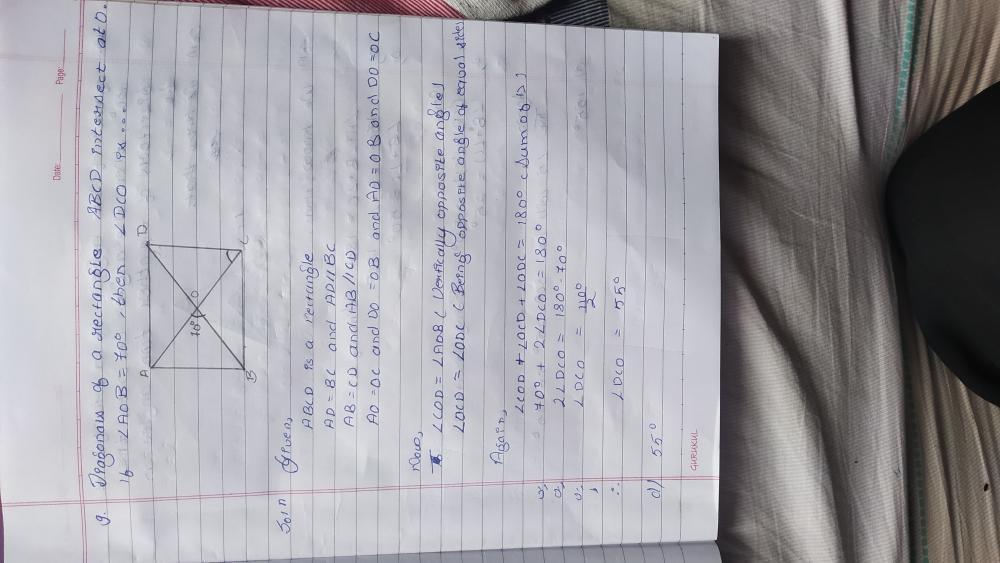 Date: Page:
9. Diagonals of a rectangle ABCD intersect at O.
If ∠AOB = 70°, then ∠DCO is.....
A
D
70°
O
B
C
Soln Given,
ABCD is a rectangle
AD = BC and AD//BC
AB = CD and AB//CD
AO = OC and DO = OB and AO = OB and DO = OC
Now,
∠COD = ∠AOB ( Vertically opposite angle)
∠OCD = ∠ODC ( Being opposite angle of equal sides
Again,
∠COD + ∠OCD + ∠ODC = 180° ( Sum of
or, 70° + 2∠DCO = 180°
or, 2∠DCO = 180° - 70°
or, ∠DCO = 110° / 2
∴ ∠DCO = 55°
d) 55°
GURUKUL